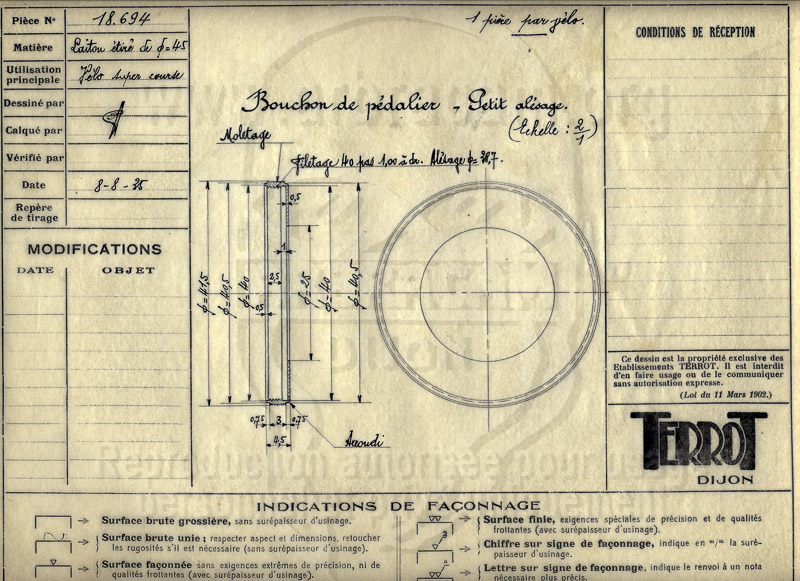 Pièce N° 18.694
Matière Laiton étiré de ϕ=45
Utilisation principale Vélo super course
Dessiné par
Calqué par
Vérifié par
Date 8-8-35
Repère de tirage
MODIFICATIONS
DATE OBJET
1 pièce par vélo.
Bouchon de pédalier - Petit alésage.
(Echelle : 2/1)
Moletage
Filetage 40 pas 1,00 à dr. Alésage ϕ=38,7.
0,5
1
2,5
0,5
ϕ=41,5
ϕ=40,5
ϕ=40
ϕ=25
ϕ=40
ϕ=40,5
0,75 3 0,75
4,5
Arrondi
CONDITIONS DE RÉCEPTION
Ce dessin est la propriété exclusive des
Etablissements TERROT. Il est interdit
d'en faire usage ou de le communiquer
sans autorisation expresse.
(Loi du 11 Mars 1902.)
TERROT
DIJON
INDICATIONS DE FAÇONNAGE
Surface brute grossière, sans surépaisseur d'usinage.
Surface brute unie ; respecter aspect et dimensions, retoucher
les rugosités s'il est nécessaire (sans surépaisseur d'usinage).
Surface façonnée sans exigences extrêmes de précision, ni de
qualités frottantes (avec surépaisseur d'usinage).
Surface finie, exigences spéciales de précision et de qualités
frottantes (avec surépaisseur d'usinage).
Chiffre sur signe de façonnage, indique en m/m la suré-
paisseur d'usinage.
Lettre sur signe de façonnage, indique le renvoi à un nota
nécessaire plus précis.